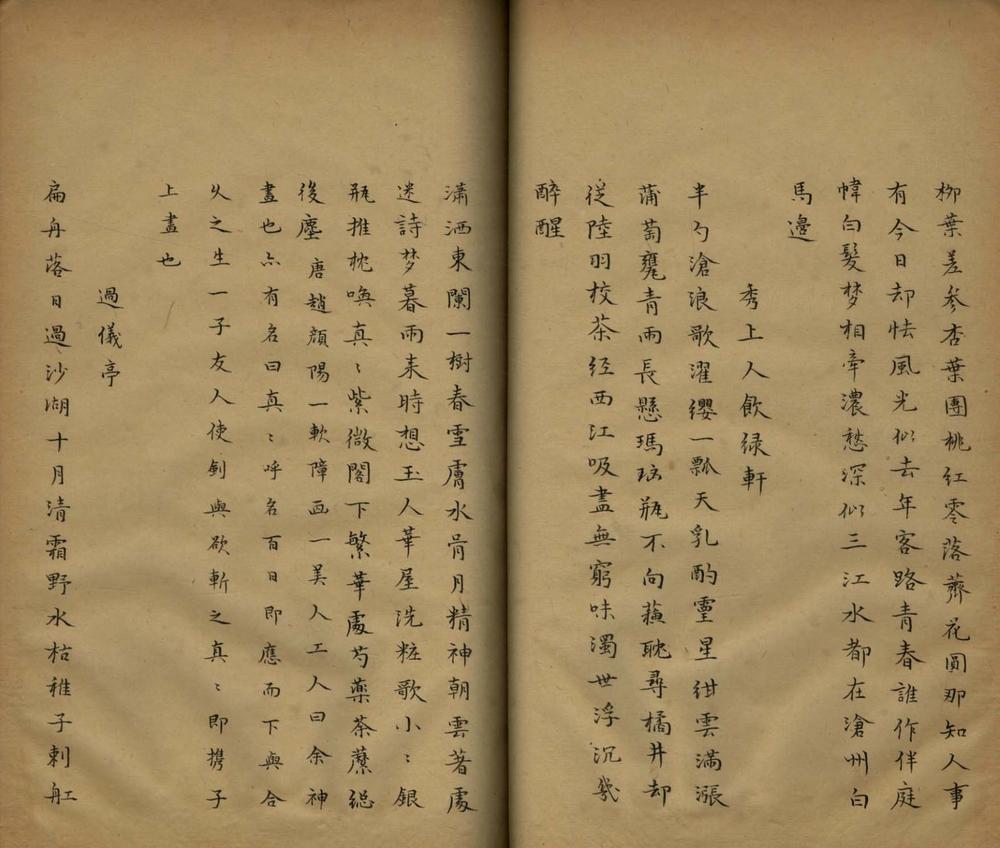 柳葉差參杏葉團桃紅零落薺花圓那知人事
有今日却怯風光似去年客路青春誰作伴庭
幃白髮梦相牽濃愁深似三江水都在滄州白
馬邊
秀上人飲绿軒
半勺滄浪歌濯纓一瓢天乳酌靈星紺雲滿漲
蒲萄甕青雨長懸瑪瑙瓶不向蘓耽尋橘井却
從陸羽校茶经西江吸盡無窮味濁世浮沉幾
醉醒
瀟洒東闌一樹春雪膚水骨月精神朝雲著處
迷詩梦暮雨来時想玉人華屋洗粧歌小〻銀
瓶推枕喚真〻紫微閣下繁華處芍藥荼蘼総
後塵 唐趙顔陽一軟障画一美人工人曰余神
畫也亦有名曰真〻呼名百日即應而下與合
乆之生一子友人使剑與欲斬之真〻即携子
上畫也
過儀亭
扁舟落日過沙湖十月清霜野水枯稚子刺舡